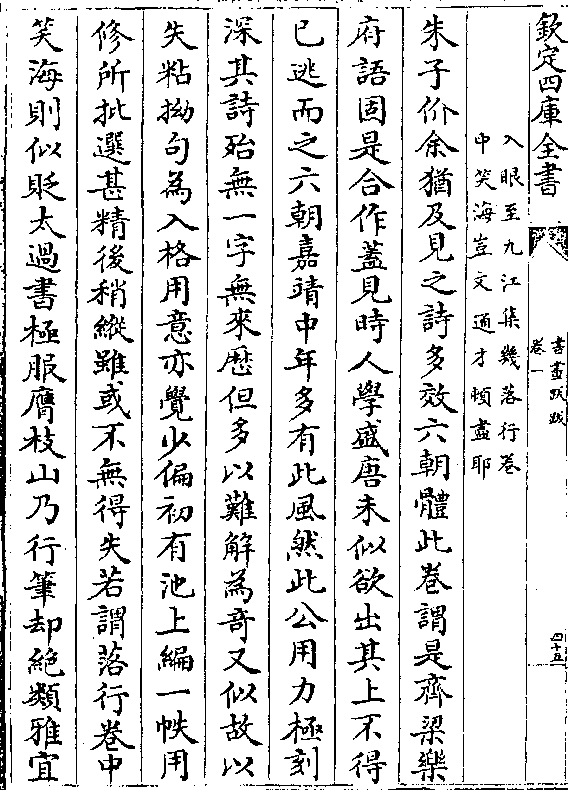 欽定四庫全書
書畫跋跋
卷一
四十五
入眼至九江集幾落行卷
中笑海豈文通才頓盡耶
朱子价余猶及見之詩多效六朝體此卷謂是齊梁樂
府語固是合作蓋見時人學盛唐未似欲出其上不得
已逃而之六朝嘉靖中年多有此風然此公用力極刻
深其詩殆無一字無來歷但多以難解為奇又似故以
失粘拗句為入格用意亦覺少偏初有池上編一帙用
修所批選甚精後稍縱雖或不無得失若謂落行卷中
笑海則似貶太過書極服膺枝山乃行筆却絕類雅宜